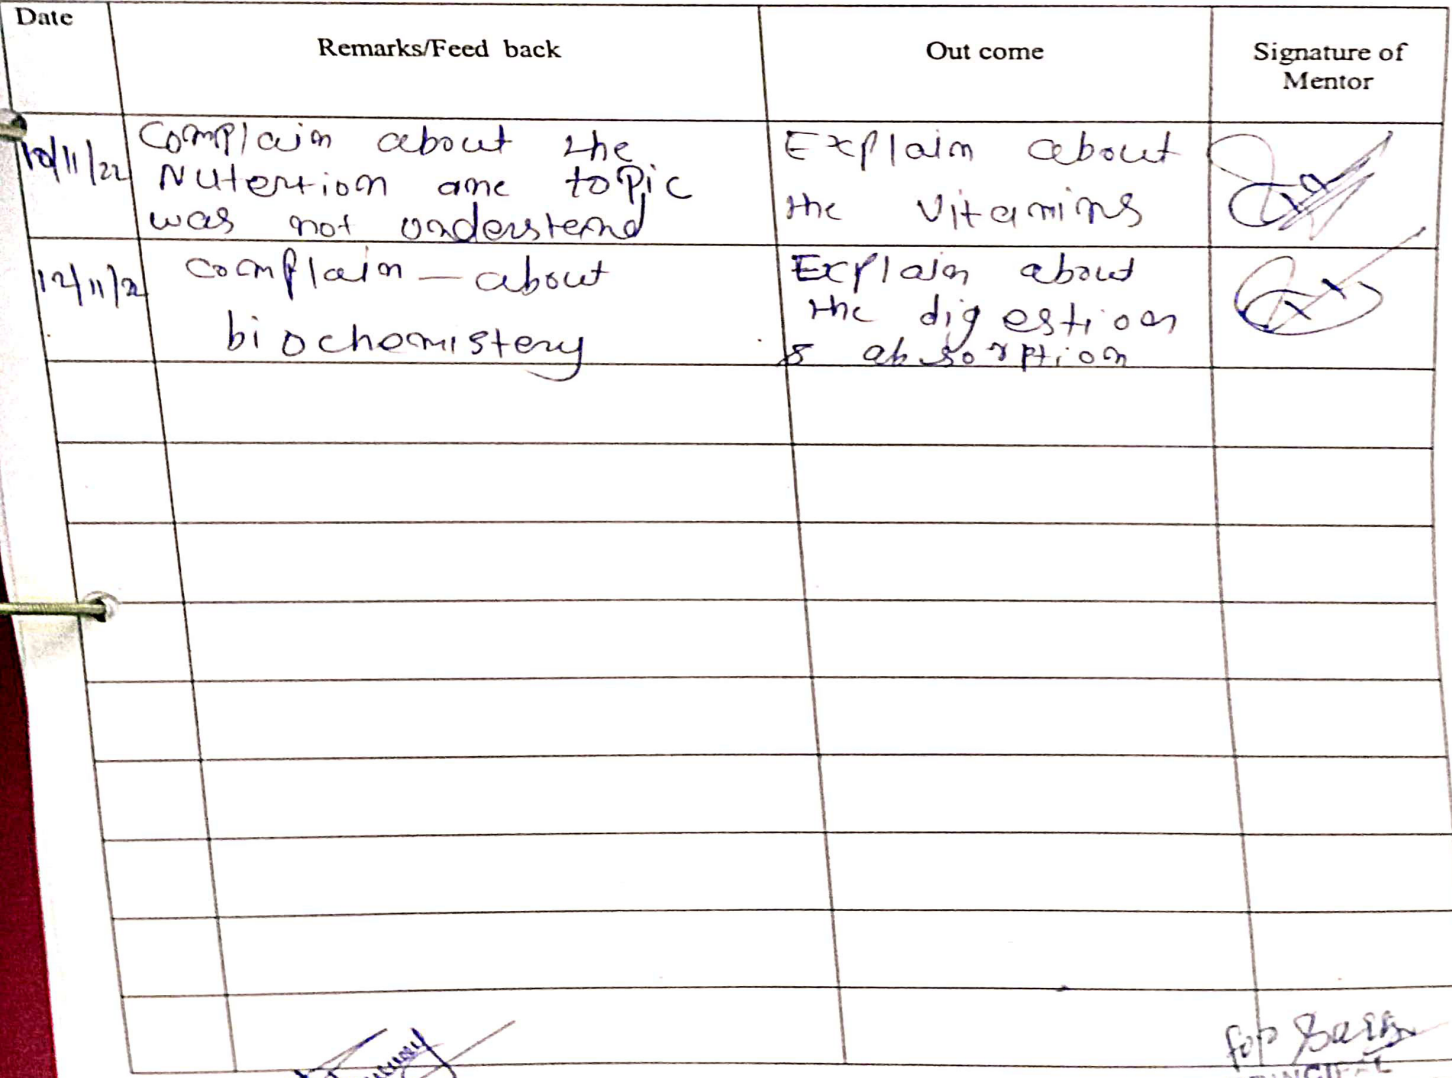 Date
Remarks/Feed back
Out come
Signature of
Mentor
10/11/22
Complain about the
Nutertion ane topic
was not understend
Explain about
the vitamins
12/11/22
complain — about
biochemistery
Explain about
the digestion
& absorption
for